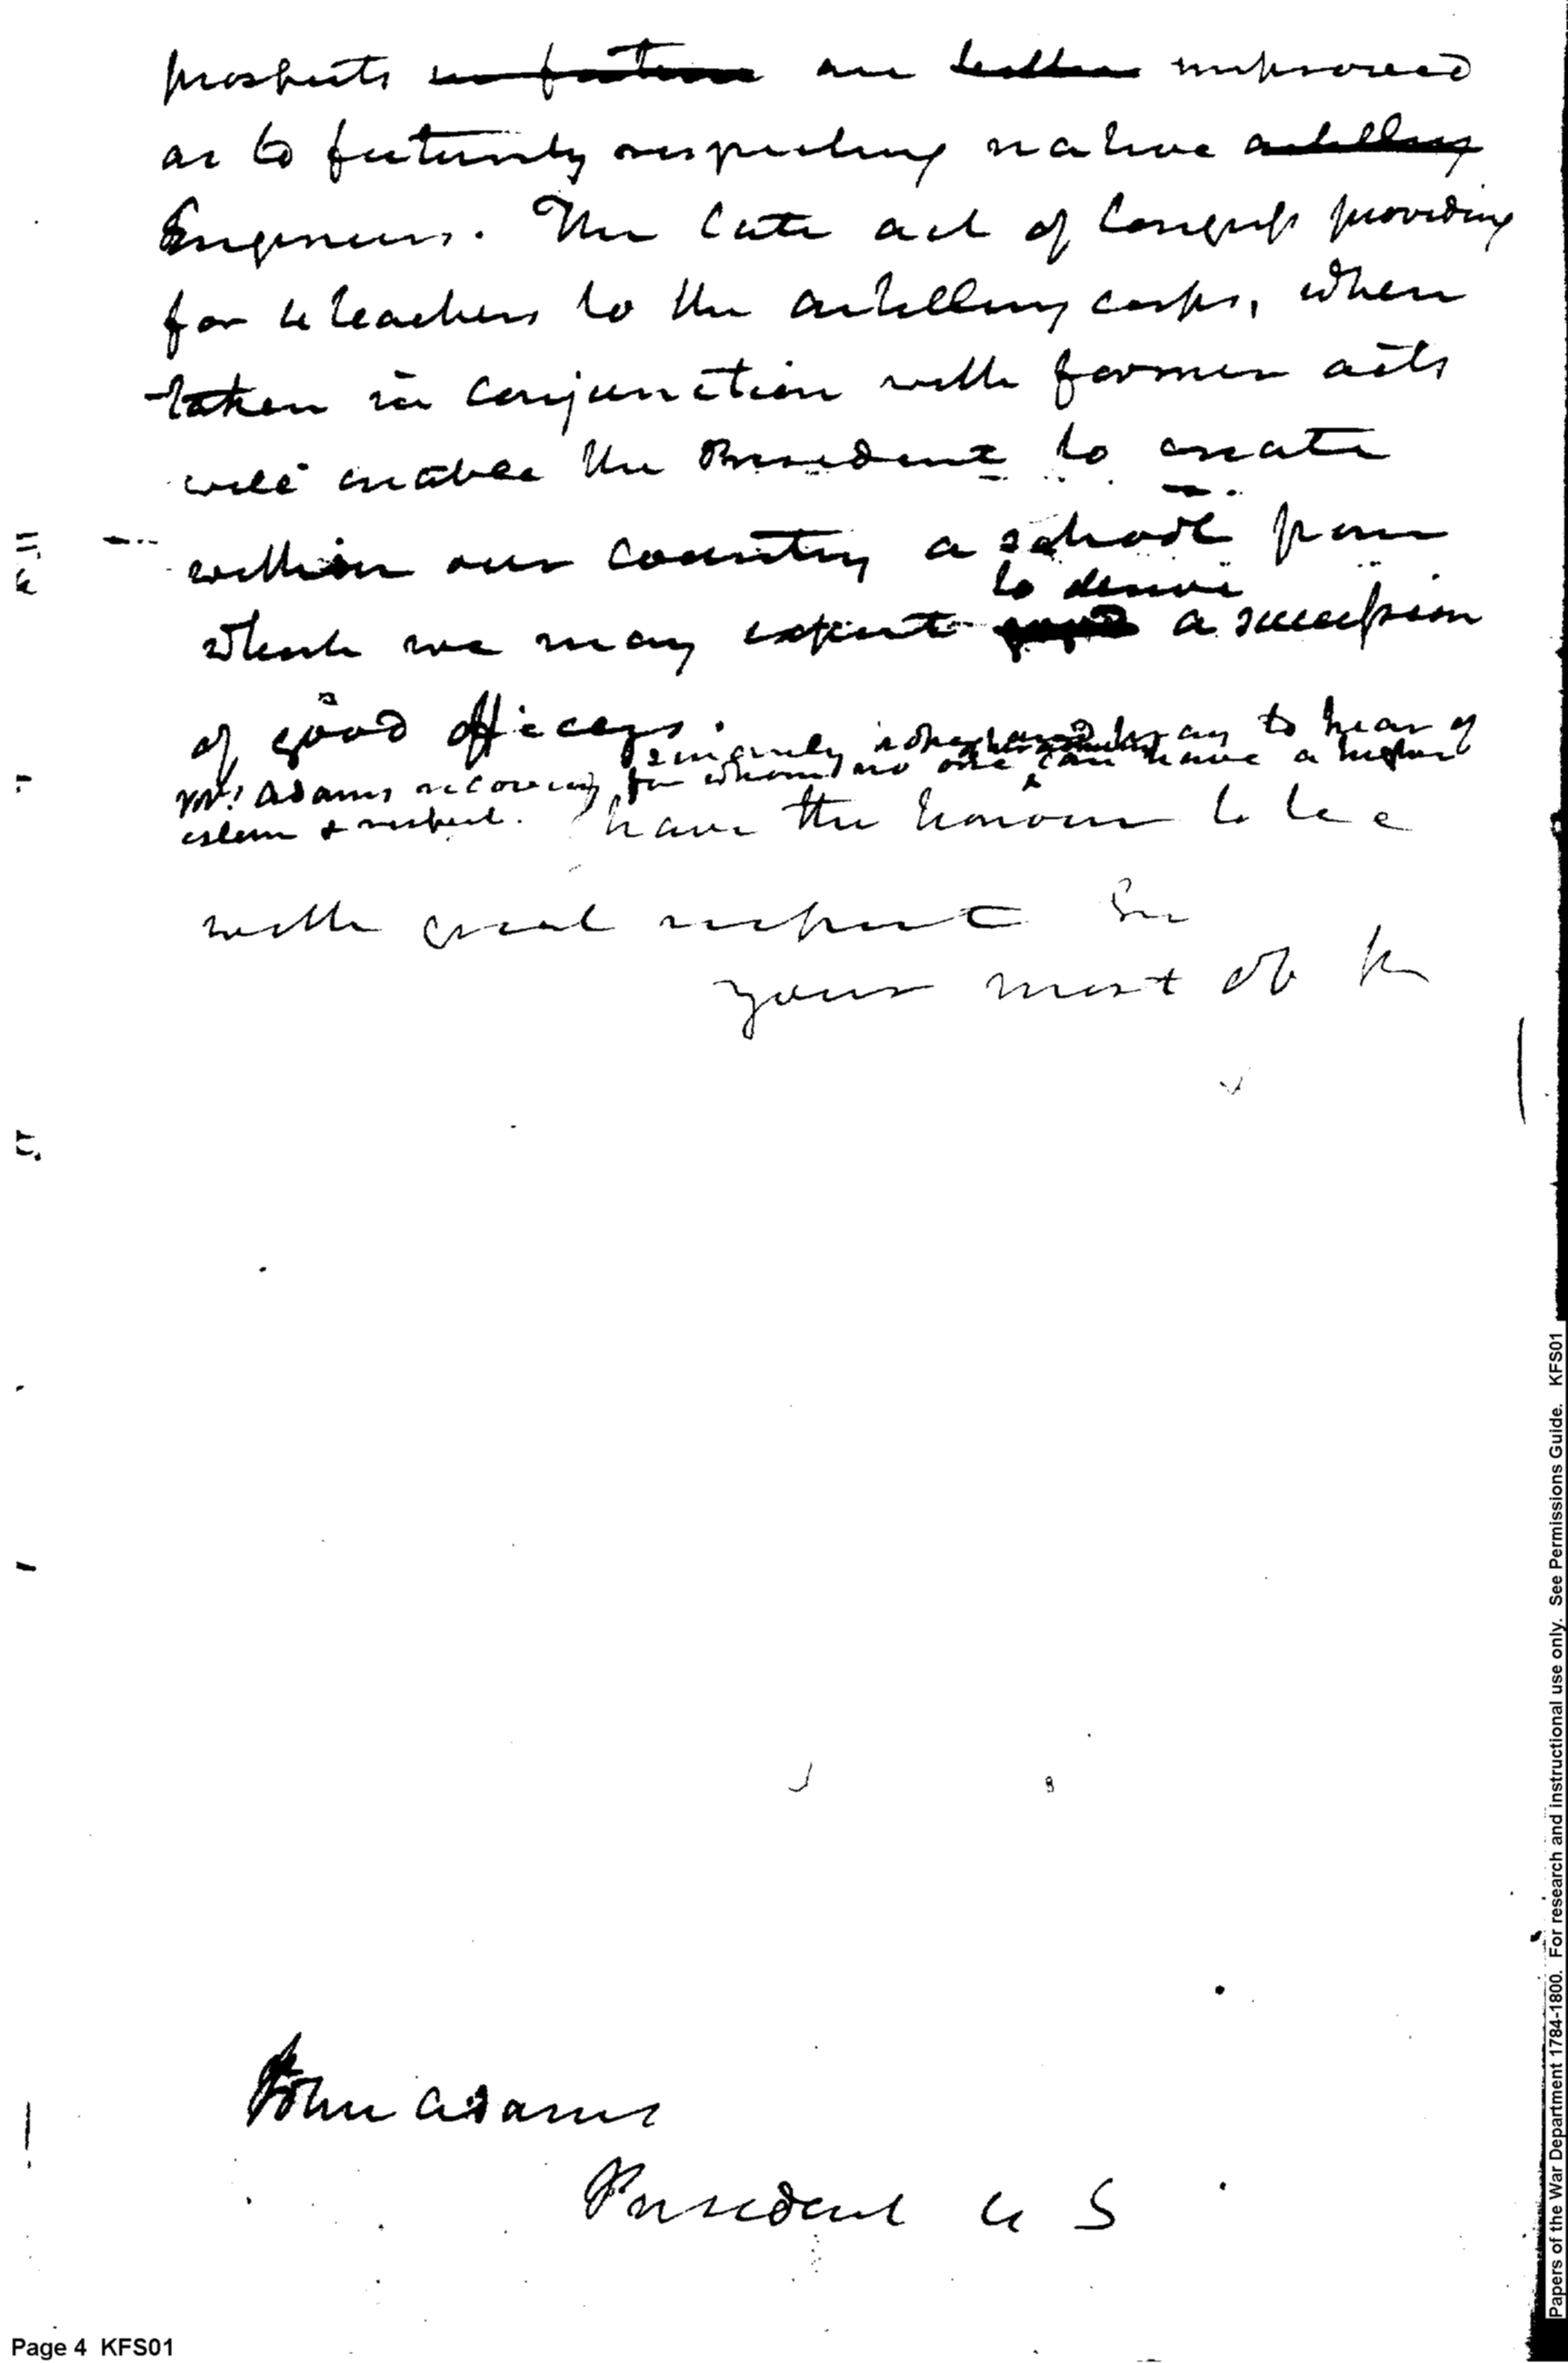 prospects in future are better improved
as to futurity respecting native artillery
Engineers. The late act of Congress providing
for 4 teachers to the artillery corps, when
taken in conjunction with former acts
will enable the President to create
within our country a school from
to derive
which we may expect a succession
of good officers.
sincerely to hear of
Mrs. Adams recovery for whom no one can have a higher
esteem & respect. I have the honour to be
with great respect Sir
your most ob
John Adams
President U S
Page 4 KFS01
Papers of the War Department 1784-1800. For research and instructional use only. See Permissions Guide. KFS01